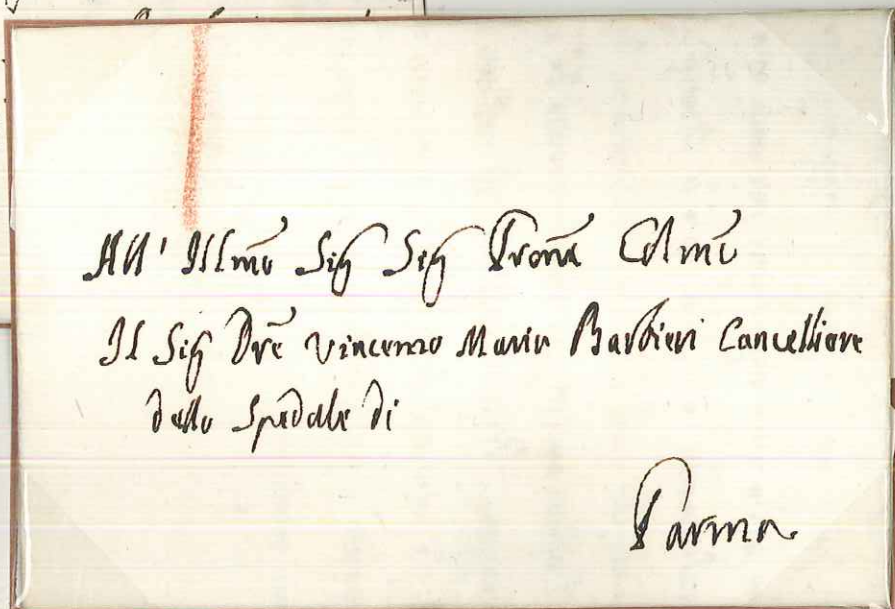 All' Illmo Sig Sig Prone Colmo
Il Sig Dre Vincenzo Maria Barbieri Cancelliere
dello Spedale di
Parma